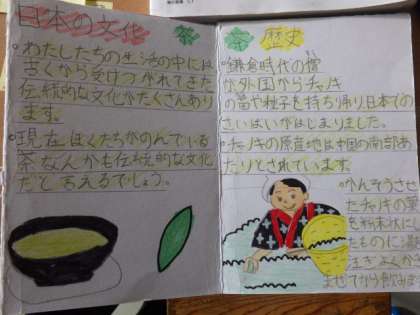 日本の文化
茶
○わたしたちの生活の中には
古くから受けつがれてきた
伝統的な文化がたくさんあり
ます。
○現在ぼくたちがのんでいる
茶なんかも伝統的な文化
だと言えるでしょう。
茶 歴史
○鎌倉時代の僧
が外国からチャノキ
の苗や種子を持ち帰り日本での
さいばいがはじまりました。
○チャノキの原産地は中国の南部あ
たりとされています。
かんそうさせ
たチャノキの葉
を粉末状にし
たものに湯を
注ぎよくかき
まぜてから飲みま